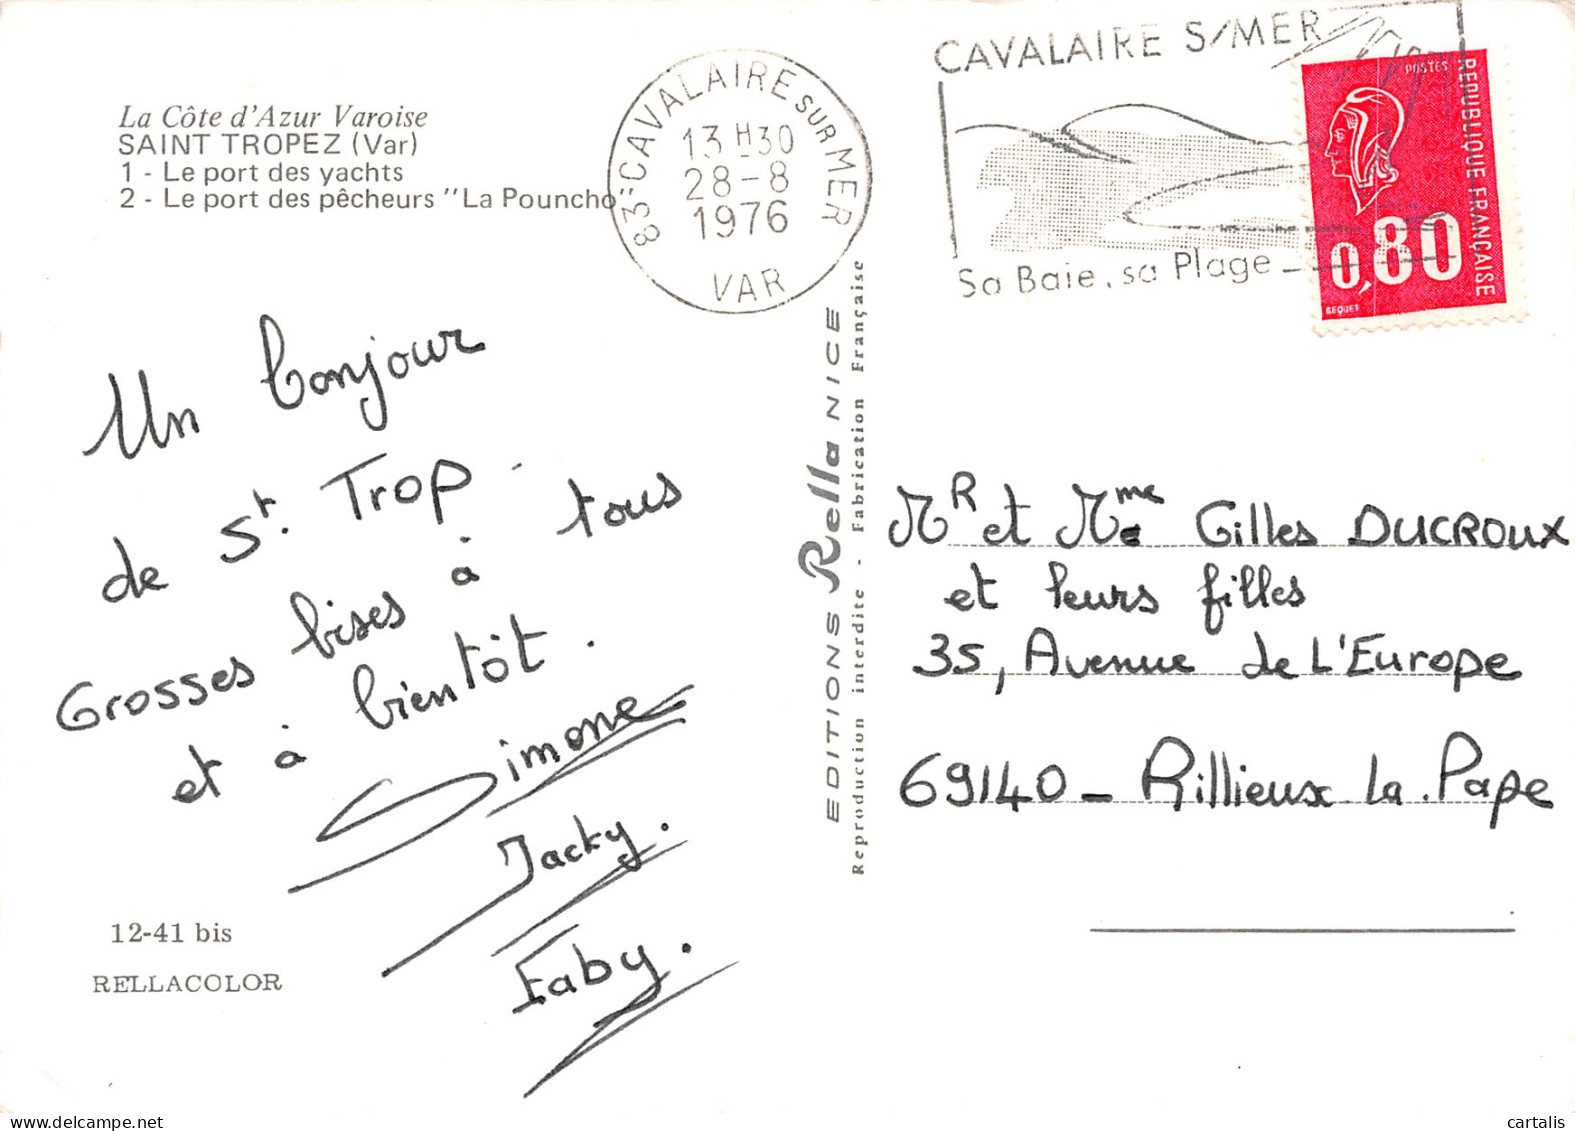 La Côte d'Azur Varoise
SAINT TROPEZ (Var)
1 - Le port des yachts
2 - Le port des pêcheurs "La Pouncho"
83 - CAVALAIRE SUR MER
13 H 30
28 - 8
1976
VAR
CAVALAIRE S/MER
Sa Baie, sa Plage
POSTES
REPUBLIQUE FRANÇAISE
0,80
BEQUET
Un bonjour
de St. Trop.
Grosses bises à tous
et à bientôt.
Simone
Jacky.
Faby.
12-41 bis
RELLACOLOR
EDITIONS Rella NICE
Reproduction interdite - Fabrication Française
MR et Mme Gilles DUCROUX
et leurs filles
35, Avenue de L'Europe
69140 - Rillieux La Pape
cartalis